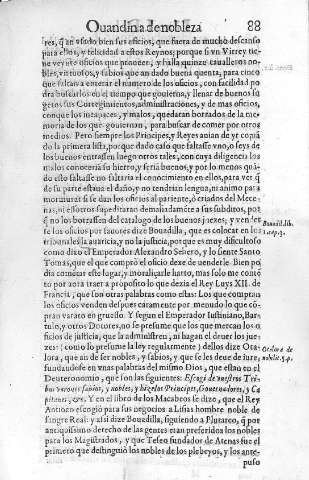 Quandin a de nobleza 88
res, q̃ an vsado bien sus oficios, que fuera de mucho descanso
para ellos, y felicidad a estos Reynos; porque si vn Virrey tie
ne veynte oficios que proueer, y halla quinze caualleros no-
bles, virtuosos, y sabios que an dado buena quenta, para cinco
que faltan a enterar el numero de los oficios, con facilidad po
dra buscarlos en el tiempo que gouierna, y llenar de buenos su
getos sus Corregimientos, administraciones, y de mas oficios,
conque los incapaces, y malos, quedaran borrados de la me
moria de los que gouiernan, para buscar de comer por otros
medios. Pero siempre los Principes, y Reyes auian de yr copiã
do la primera lista, porque dado caso que faltasse vno, o seys de
los buenos entrassen luego otros tales, con cuya diligencia los
malos conoceria su hierro, y seria buenos, y por lo menos quã
do esto faltasse no faltaria el conocimiento en ellos, para ver q̃
de su parte estauo el daño, y no tendrian lengua, ni animo para
murmurar si se dan los oficios al pariente, ò criados del Mece-
nas, ni estorros supeditaran demasiadamẽte a sus subditos, por
q̃ no los borrassen del catalogo de los buenos juezes; y vender
se los oficios por fauores dize Bouadilla, que es colocar en los
tribunales la auaricia, y no la justicia, porque es muy dificultoso
como dixo el Emperador Alexandro Seuero, y lo siente Santo
Tomas, que el que compró el oficio dexe de venderle. Bien po
dia comentar esto lugar, y moralizarle harto, mas solo me contẽ
to por aora traer a proposito lo que dezia el Rey Luys XII. de
Francia, que son otras palabras como estas: Los que compran
los oficios venden despues caramente por menudo lo que cõ-
pran varato en gruesso. Y segun el Emperador Iustiniano, Bar-
tulo, y otros Dotores, no se presume que los que mercan los o-
ficios de justicia, que la administren, ni hagan el deuer los jue-
zes: (como lo presume la ley regularmente) dellos dize Ota-
lora, que an de ser nobles, y sabios, y que se les deue de jure,
fundandose en vnas palabras del mismo Dios, que estan en el
Deuteronomio, que son las siguientes: Escogi de vuestros Tri-
bus varones sabios, y nobles, y hizelos Principes, Gouernadores, y Ca
pitanes, &c. Y en el libro de los Macabeos se dize, que el Rey
Antioco escogiò para sus negocios a Lisias hombre noble de
sangre Real: y assi dize Bouadilla, siguiendo a Plutarco, q̃ por
antiquissimo derecho de las gentes eran preferidos los nobles
para los Magistrados, y que Teseo fundador de Atenas fue el
primero que destinguió los nobles de los plebeyos, y los ante-
puso
Bouadil. lib.
1. cap. 3.
Otalora de
nobilit. 5. 4.